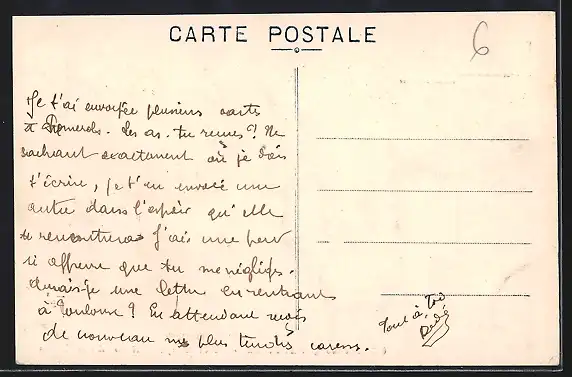 CARTE POSTALE
6
Je t'ai envoyée plusieurs cartes
à . Les as-tu reçues ? Ne
sachant exactement où je dois
t'écrire, je t'en envoie une
autre dans l'espoir qu'elle
te rencontrera J'ai une peur
si affreuse que tu me négliges.
Aurais-je une lettre en rentrant
à Toulouse ? En attendant reçois
de nouveau mes plus tendres caresses.
Tout à toi
Dédé